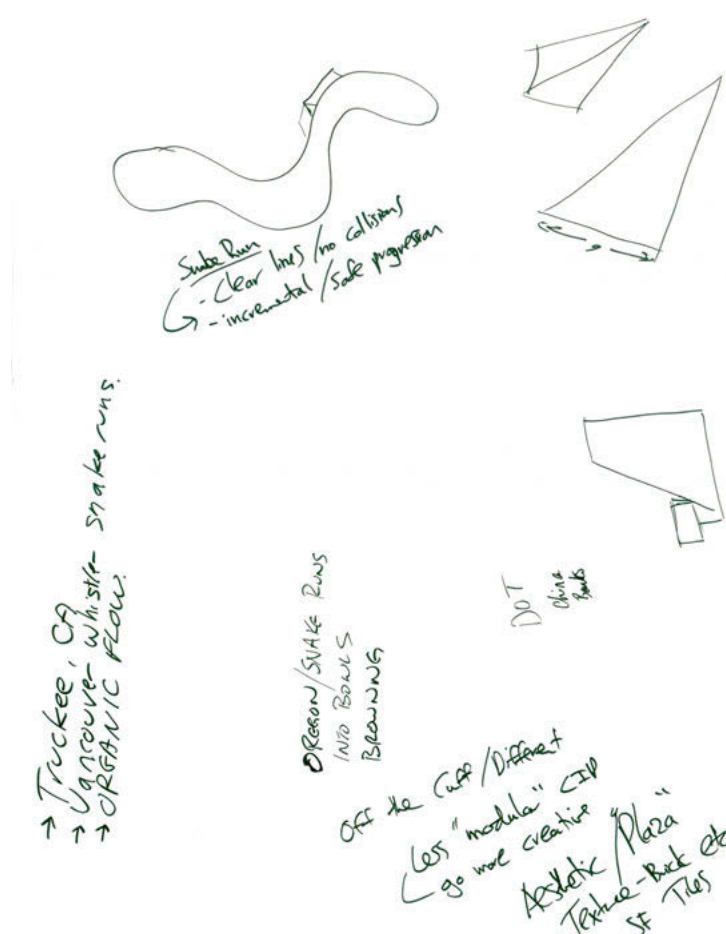 Snake Run
- Clear lines / no collisions
- incremental / safe progression
→ Truckee, CA
→ Vancouver Whistler snake runs.
→ ORGANIC FLOW.
OREGON/SNAKE RUNS
INTO BOWLS
BROWNING
DOT
China
Banks
Off the Cuff / Different
Less "modular" CIP
go more creative
Aesthetic / "Plaza"
Texture - Brick etc
SF Tiles